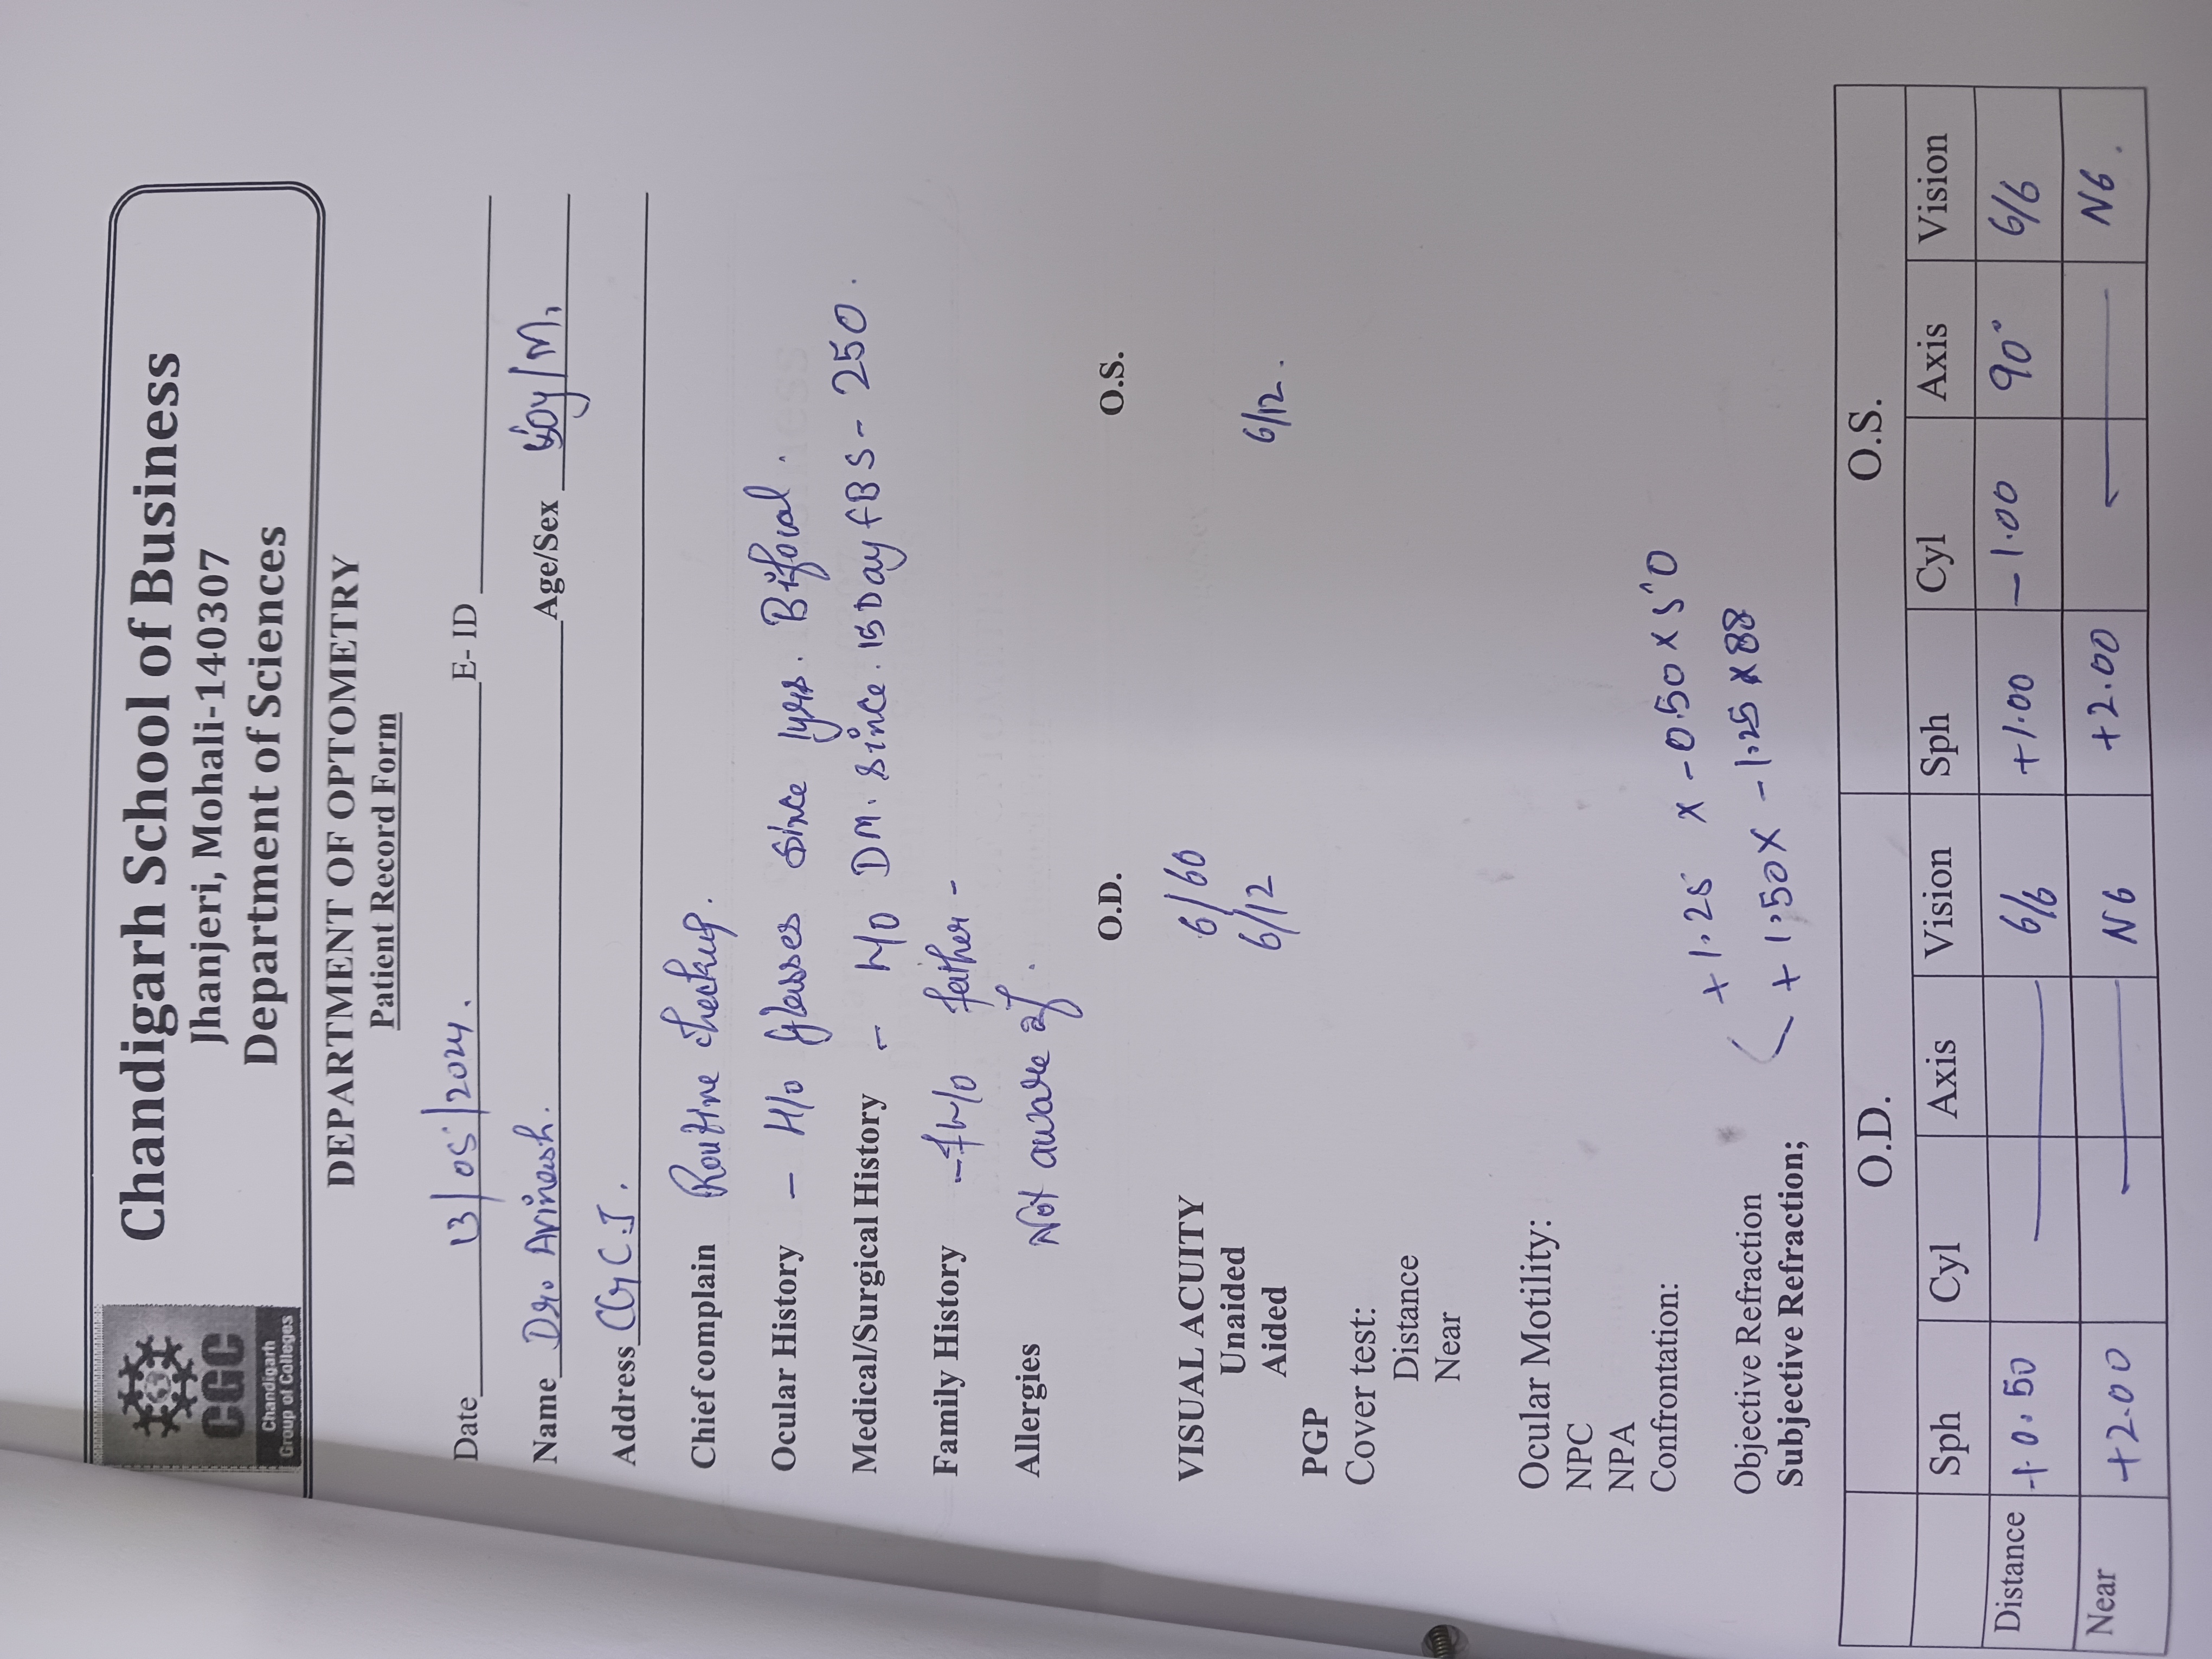 CGC
Chandigarh
Group of Colleges
Chandigarh School of Business
Jhanjeri, Mohali-140307
Department of Sciences
DEPARTMENT OF OPTOMETRY
Patient Record Form
Date 13/05/2024. E- ID
Name Dr. Avinash. Age/Sex /M,
Address CGCJ.
Chief complain Routine checkup.
Ocular History - H/o Glasses since 1yrs. Bifocal.
Medical/Surgical History - H/O DM. since. 15 Day FBS - 250.
Family History - H/O father -
Allergies Not aware of.
O.D. O.S.
VISUAL ACUITY 6/60
Unaided
Aided 6/12 6/12.
PGP
Cover test:
Distance
Near
Ocular Motility:
NPC
NPA
Confrontation:
+1.25 x -0.50 x
Objective Refraction
+1.50 x -1.25 x 88
Subjective Refraction;
O.D. O.S.
Sph Cyl Axis Vision Sph Cyl Axis Vision
Distance +0.50 6/6 +1.00 -1.00 90° 6/6
Near +2.00 N6 +2.00 N6.